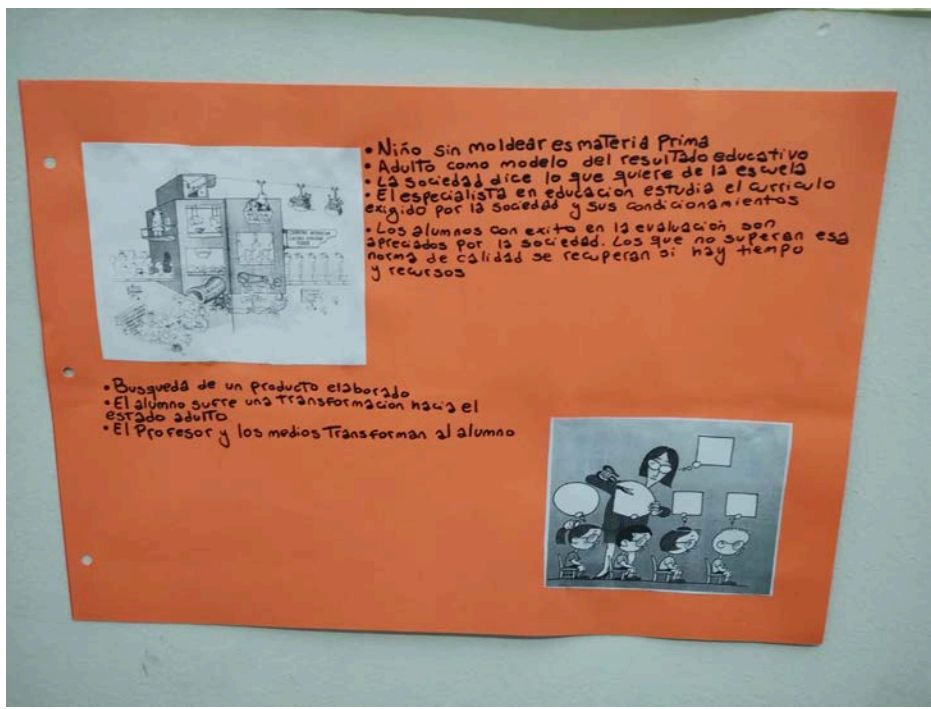 • Niño sin moldear es materia Prima
• Adulto como modelo del resultado educativo
• La sociedad dice lo que quiere de la escuela
• El especialista en educación estudia el curriculo
exigido por la sociedad y sus condicionamientos
• Los alumnos con exito en la evaluación son
apreciados por la sociedad. Los que no superan esa
norma de calidad se recuperan si hay tiempo
y recursos
• Busqueda de un producto elaborado
• El alumno sufre una transformacion hacia el
estado adulto
• El Profesor y los medios Transforman al alumno